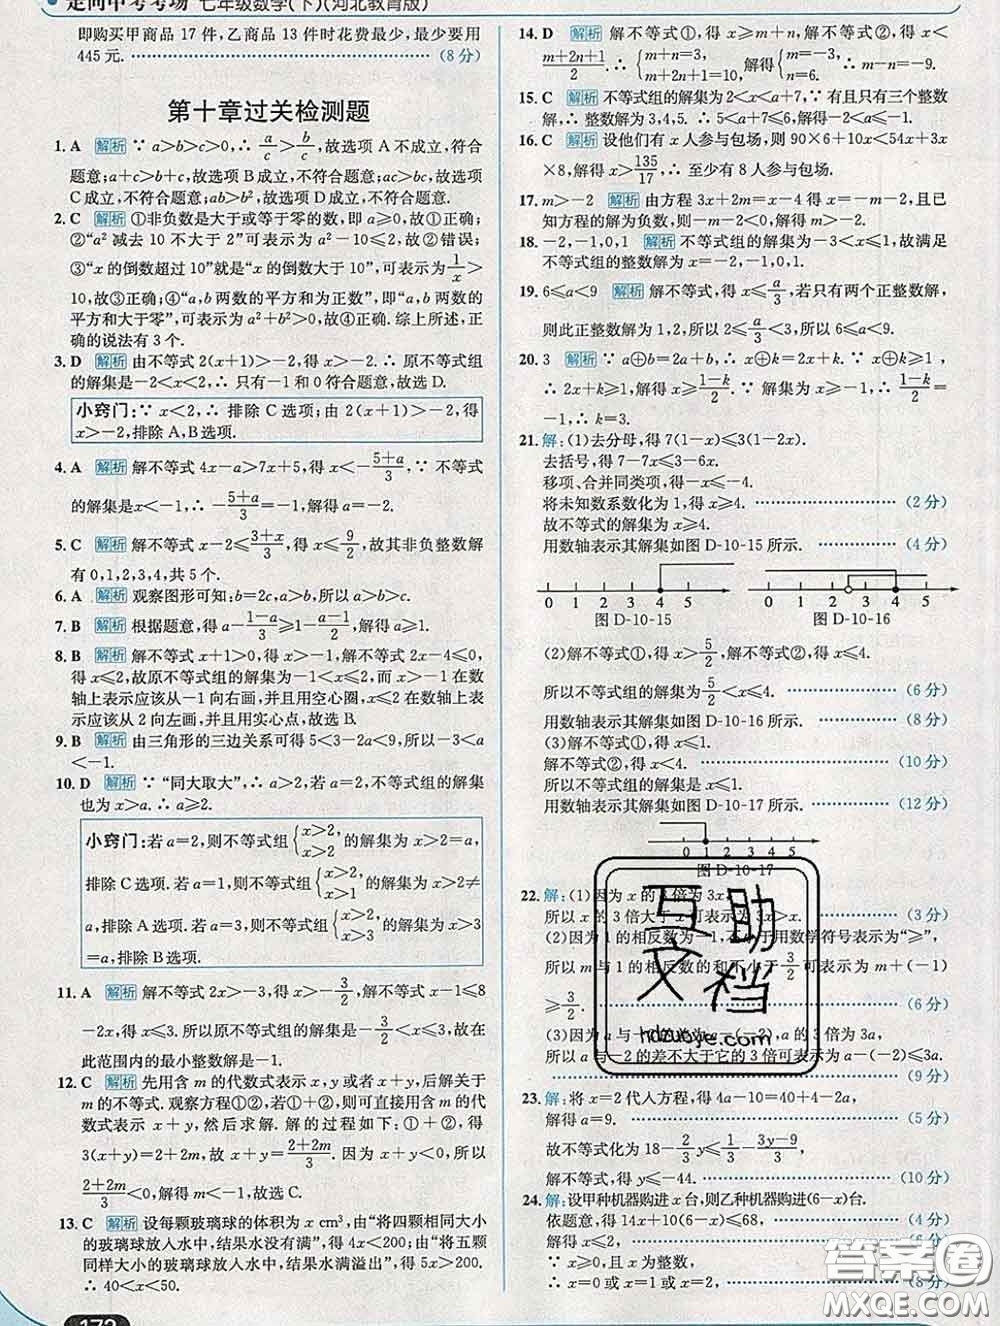 走向中考考场 七年级数学(下)(河北教育版)
即购买甲商品 17 件,乙商品 13 件时花费最少,最少要用
445 元. (8 分)
第十章过关检测题
1. A 解析 ∵ a>b>c>0,∴ a/c>b/c,故选项 A 不成立,符合
题意;a+c>b+c,故选项 B 成立,不符合题意;ac>bc,故选项
C 成立,不符合题意;ab>b²,故选项 D 成立,不符合题意.
2. C 解析 ①非负数是大于或等于零的数,即 a≥0,故①正确;
②“a² 减去 10 不大于 2”可表示为 a²-10≤2,故②错误;
③“x 的倒数超过 10”就是“x 的倒数大于 10”,可表示为 1/x>
10,故③正确;④“a,b 两数的平方和为正数”,即“a,b 两数的
平方和大于零”,可表示为 a²+b²>0,故④正确.综上所述,正
确的说法有 3 个.
3. D 解析 由不等式 2(x+1)>-2,得 x>-2.∴ 原不等式组
的解集是-2<x<2,∴ 只有-1 和 0 符合题意,故选 D.
小窍门:∵ x<2,∴ 排除 C 选项;由 2(x+1)>-2,得
x>-2,排除 A,B 选项.
4. A 解析 解不等式 4x-a>7x+5,得 x<-(5+a)/3,∵ 不等式
的解集是 x<-1,∴ -(5+a)/3=-1,解得 a=-2.
5. C 解析 解不等式 x-2≤(3+x)/3,得 x≤9/2,故其非负整数解
有 0,1,2,3,4,共 5 个.
6. A 解析 观察图形可知:b=2c,a>b,所以 a>b>c.
7. B 解析 根据题意,得 a-(1-a)/3≥1-(1-a)/2,解得 a≥1.
8. B 解析 解不等式 x+1>0,得 x>-1,解不等式 2x-4≤0,
得 x≤2,故原不等式组的解集为-1<x≤2,而 x>-1 在数
轴上表示应该从-1 向右画,并且用空心圈,x≤2 在数轴上表
示应该从 2 向左画,并且用实心点,故选 B.
9. B 解析 由三角形的三边关系可得 5<3-2a<9,所以-3<a
<-1.
10. D 解析 ∵ “同大取大”,∴ a>2,若 a=2,不等式组的解集
也为 x>a.∴ a≥2.
小窍门:若 a=2,则不等式组{x>2, x>2 的解集为 x>2=a,
排除 C 选项.若 a=1,则不等式组{x>2, x>1 的解集为 x>2≠
a,排除 A 选项.若 a=3,则不等式组{x>2, x>3 的解集为 x>3
=a,排除 B 选项.
11. A 解析 解不等式 2x>-3,得 x>-3/2,解不等式 x-1≤8
-2x,得 x≤3.所以原不等式组的解集为-3/2<x≤3,故在
此范围内的最小整数解是-1.
12. C 解析 先用含 m 的代数式表示 x,y 或者 x+y,后解关于
m 的不等式.观察方程①②,若①+②,则可直接用含 m 的代
数式表示 x+y,然后求解.解的过程如下:①+②,得
3(x+y)=2+2m.∴ x+y=(2+2m)/3.∵ x+y<0,∴
(2+2m)/3<0,解得 m<-1.
13. C 解析 设每颗玻璃球的体积为 x cm³,由“将四颗相同大小
的玻璃球放入水中,结果水没有满”,得 4x<200;由“将五颗
同样大小的玻璃球放入水中,结果水满溢出”,得 5x>200.
∴ 40<x<50.
172
14. D 解析 解不等式①,得 x≥m+n,解不等式②,得 x<
(m+2n+1)/2.∴ {m+n=-3, m+2n+1=10, 解得{m=-15, n=12. ∴ n/m
15. C 解析 不等式组的解集为 2<x<a+7,∵ 有且只有三个整数
解,∴ 整数解为 3,4,5.∴ 5<a+7≤6,∴ -2<a≤-1.
16. C 解析 设他们有 x 人参与包场,则 90×6+10x<54x+3x
×8,解得 x>135/17,∴ 至少有 8 人参与包场.
17. m>-2 解析 由方程 3x+2m=x-4 得 x=-m-2,且已
知方程的解为负数,则-m-2<0,解得 m>-2.
18. -2,-1,0,1 解析 不等式组的解集为-3<x≤1,故满足
不等式组的整数解为-2,-1,0,1.
19. 6≤a<9 解析 解不等式,得 x≤a/3,若只有两个正整数解,
则此正整数解为 1,2,所以 2≤a/3<3,所以 6≤a<9.
20. 3 解析 ∵ a⊕b=2a+b,∴ x⊕k=2x+k.∵ x⊕k≥1,
∴ 2x+k≥1,解得 x≥(1-k)/2.∵ x≥-1,∴ (1-k)/2=
-1,∴ k=3.
21. 解:(1)去分母,得 7(1-x)≤3(1-2x).
去括号,得 7-7x≤3-6x.
移项、合并同类项,得-x≤-4.
将未知数系数化为 1,得 x≥4. (2 分)
故不等式的解集为 x≥4.
用数轴表示其解集如图 D-10-15 所示. (4 分)
0 1 2 3 4 5
图 D-10-15
0 1 2 3 4 5
图 D-10-16
(2)解不等式①,得 x>5/2,解不等式②,得 x≤4.
所以不等式组的解集为 5/2<x≤4. (6 分)
用数轴表示其解集如图 D-10-16 所示. (8 分)
(3)解不等式①,得 x≤1.
解不等式②,得 x<4. (10 分)
所以不等式组的解集是 x≤1.
用数轴表示其解集如图 D-10-17 所示. (12 分)
0 1 2 3 4 5
图 D-10-17
22. 解:(1)因为 x 的 3 倍为 3x,
所以 x 的 3 倍大于 x 可表示为 3x>x. (3 分)
(2)因为 1 的相反数为-1,不小于用数学符号表示为“≥”,
所以 m 与 1 的相反数的和不小于 3/2 可表示为 m+(-1)
≥3/2. (6 分)
(3)因为 a 与-2 的差为 a-(-2),a 的 3 倍为 3a,
所以 a 与-2 的差不大于它的 3 倍可表示为 a-(-2)≤3a.
(9 分)
23. 解:将 x=2 代入方程,得 4a-10=40+4-2a,
解得 a=9. (5 分)
故不等式化为 18-2/3y≤-(3y-9)/3,
解不等式,得 y≤-45. (10 分)
24. 解:设甲种机器购进 x 台,则乙种机器购进(6-x)台.
依题意,得 14x+10(6-x)≤68, (4 分)
解得 x≤2. (6 分)
∵ x≥0,且 x 为整数,
∴ x=0 或 x=1 或 x=2, (8 分)
互助
文档
hdzuoye.com
答案圈
MXQE.COM